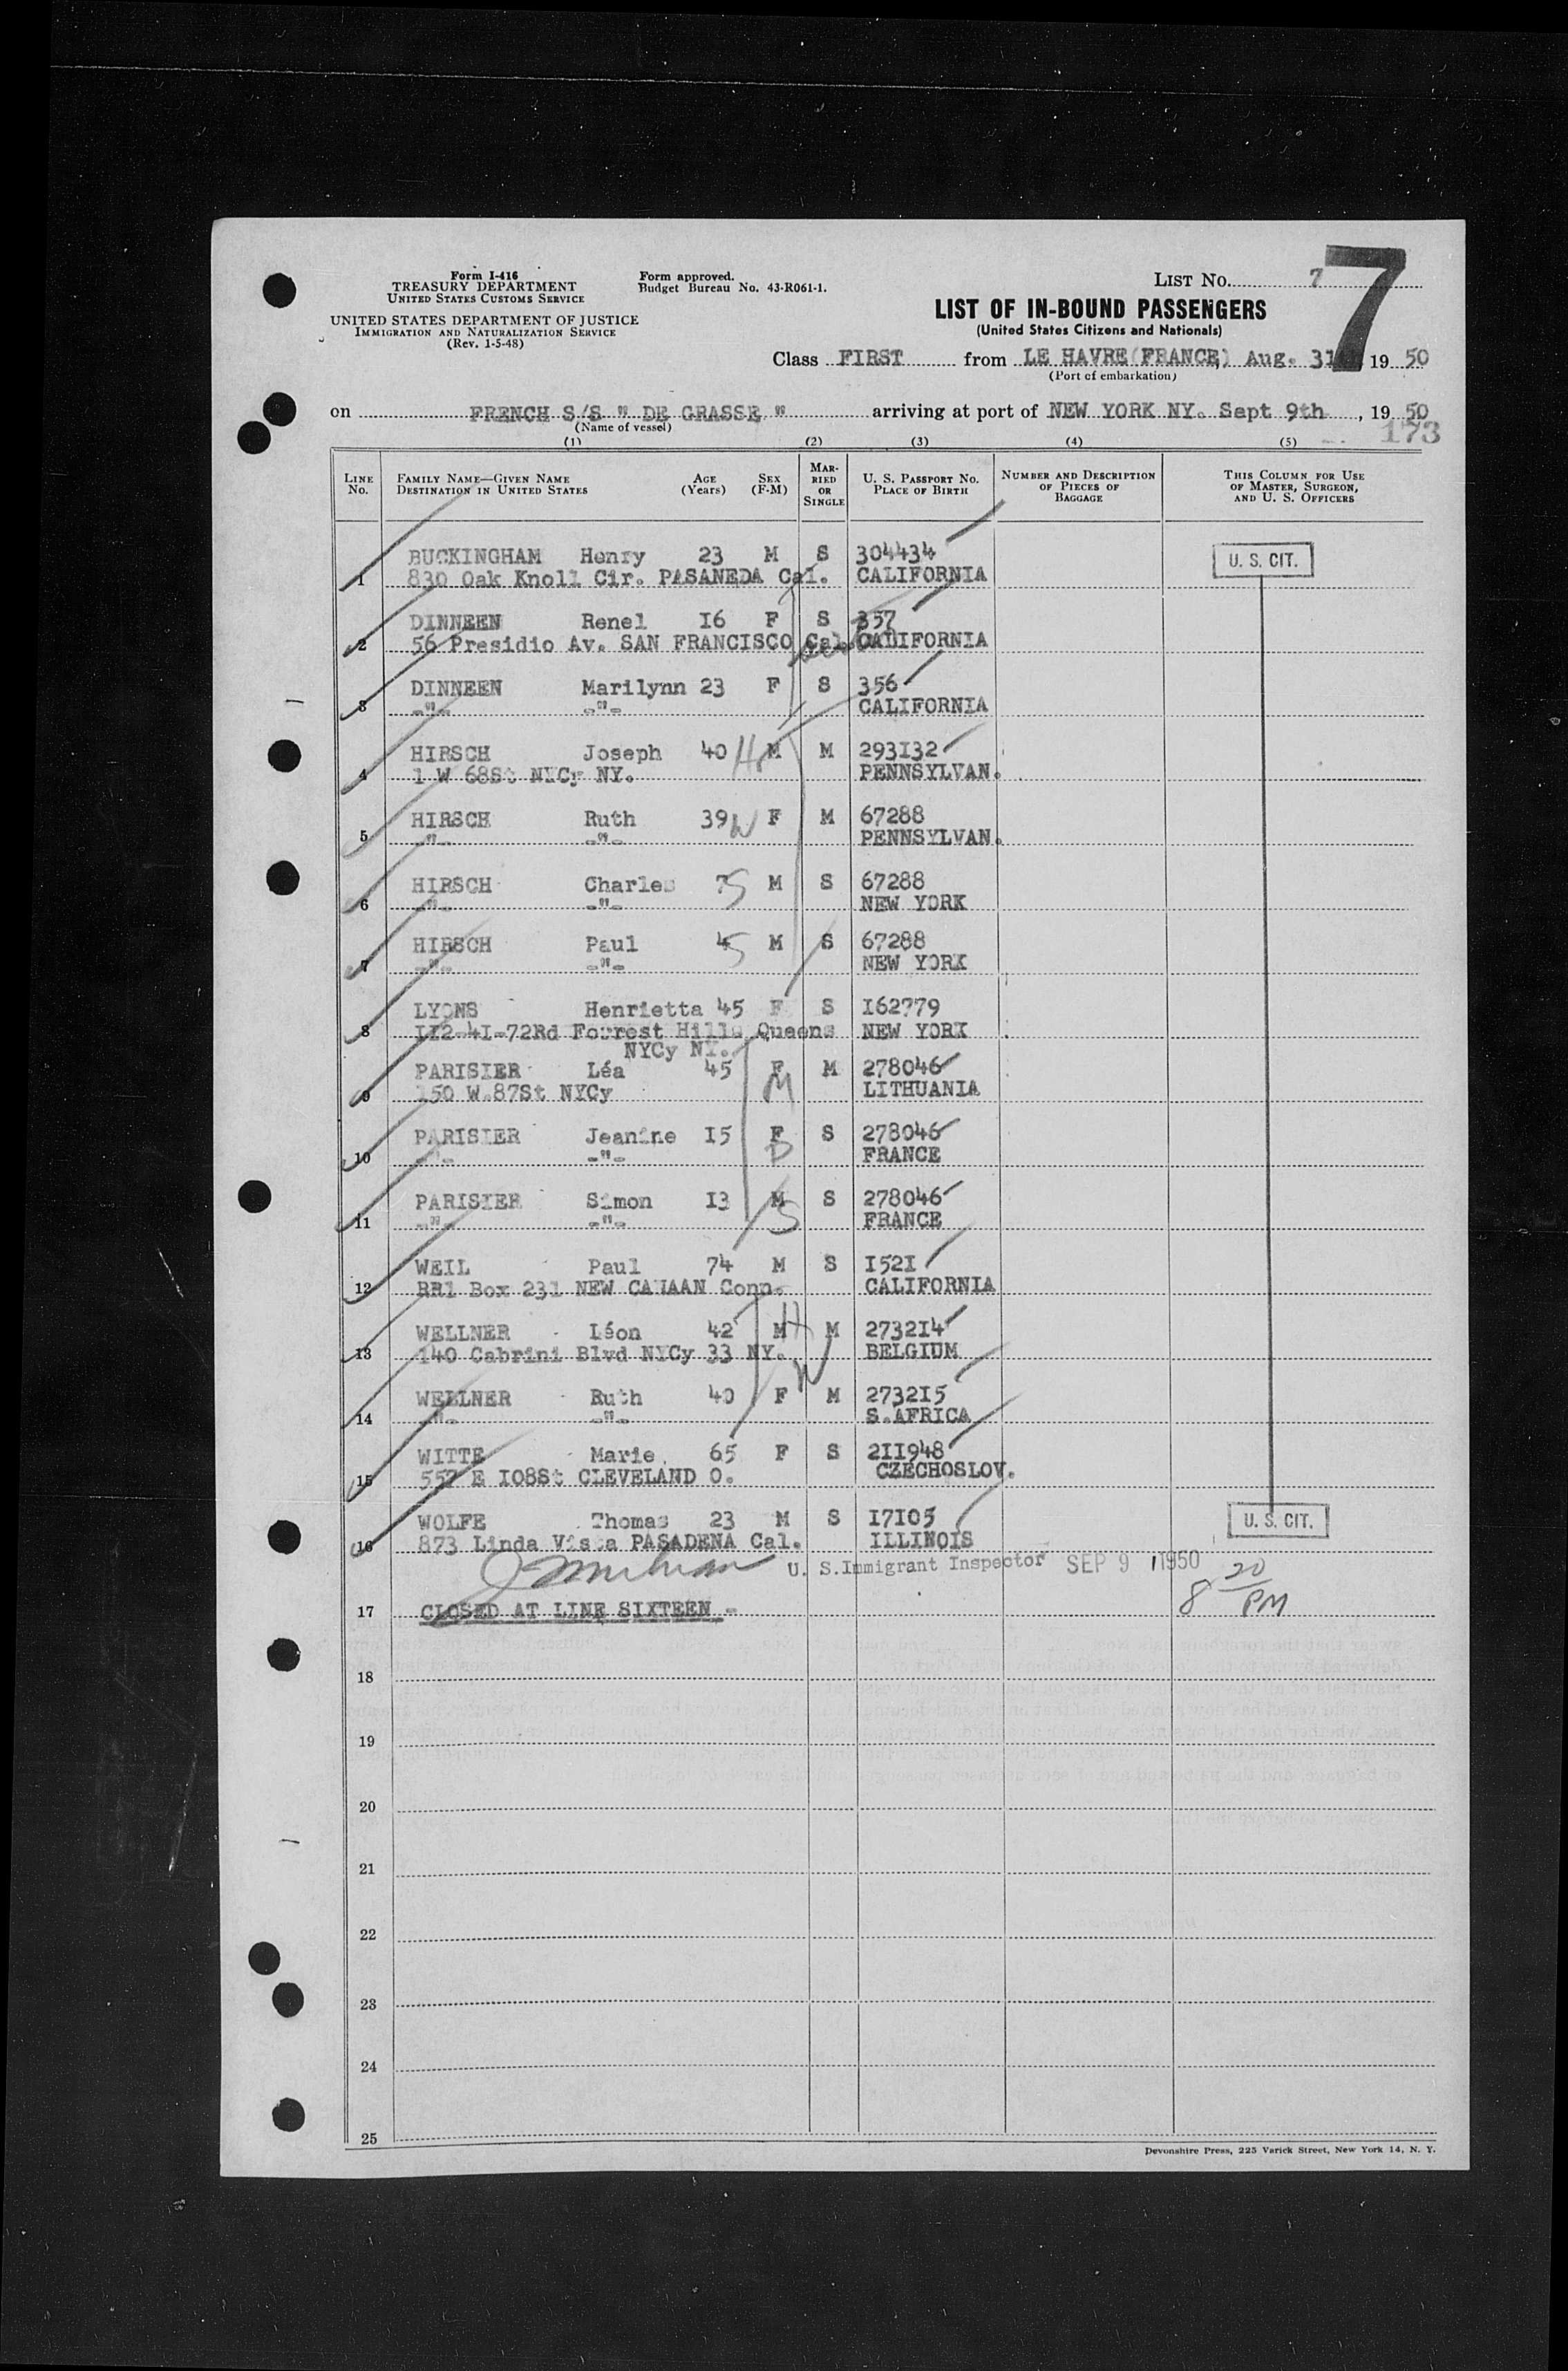 Form I-416
TREASURY DEPARTMENT
UNITED STATES CUSTOMS SERVICE
UNITED STATES DEPARTMENT OF JUSTICE
IMMIGRATION AND NATURALIZATION SERVICE
(Rev. 1-5-48)
Form approved.
Budget Bureau No. 43-R061-1.
LIST No. 7
7
LIST OF IN-BOUND PASSENGERS
(United States Citizens and Nationals)
Class FIRST from LE HAVRE (FRANCE) Aug. 31 19 50
(Port of embarkation)
on FRENCH S/S " DE GRASSE " arriving at port of NEW YORK NY. Sept 9th , 19 50
(Name of vessel)
173
(1) (2) (3) (4) (5)
LINE No. FAMILY NAME—GIVEN NAME DESTINATION IN UNITED STATES AGE (Years) SEX (F-M) MARRIED OR SINGLE U. S. PASSPORT No. PLACE OF BIRTH NUMBER AND DESCRIPTION OF PIECES OF BAGGAGE THIS COLUMN FOR USE OF MASTER, SURGEON, AND U. S. OFFICERS
BUCKINGHAM Henry 23 M S 304434 U. S. CIT.
1 830 Oak Knoll Cir. PASANEDA Cal. CALIFORNIA
DINNEEN Renel 16 F S 357
2 56 Presidio Av. SAN FRANCISCO Cal. CALIFORNIA
DINNEEN Marilynn 23 F S 356
3 -"- -"- CALIFORNIA
HIRSCH Joseph 40 H M M 293132
4 1 W 68St NYCy NY. PENNSYLVAN.
HIRSCH Ruth 39 W F M 67288
5 -"- -"- PENNSYLVAN.
HIRSCH Charles 7 S M S 67288
6 -"- -"- NEW YORK
HIRSCH Paul 4 S M S 67288
7 -"- -"- NEW YORK
LYONS Henrietta 45 F S 162779
8 112-41-72Rd Forrest Hills Queens NEW YORK
NYCy NY.
PARISIER Léa 45 F M M 278046
9 150 W.87St NYCy LITHUANIA
PARISIER Jeanine 15 F D S 278046
10 -"- -"- FRANCE
PARISIER Simon 13 M S S 278046
11 -"- -"- FRANCE
WEIL Paul 74 M S 1521
12 RR1 Box 231 NEW CANAAN Conn. CALIFORNIA
WELLNER Léon 42 M H M 273214
13 140 Cabrini Blvd NYCy 33 NY. BELGIUM
WELLNER Ruth 40 F W M 273215
14 -"- -"- S.AFRICA
WITTE Marie 65 F S 211948
15 557 E 108St CLEVELAND O. CZECHOSLOV.
WOLFE Thomas 23 M S 17105 U. S. CIT.
16 873 Linda Vista PASADENA Cal. ILLINOIS
U. S. Immigrant Inspector SEP 9 1950
8 20 PM
17 CLOSED AT LINE SIXTEEN -
18
19
20
21
22
23
24
25
Devonshire Press, 225 Varick Street, New York 14, N. Y.